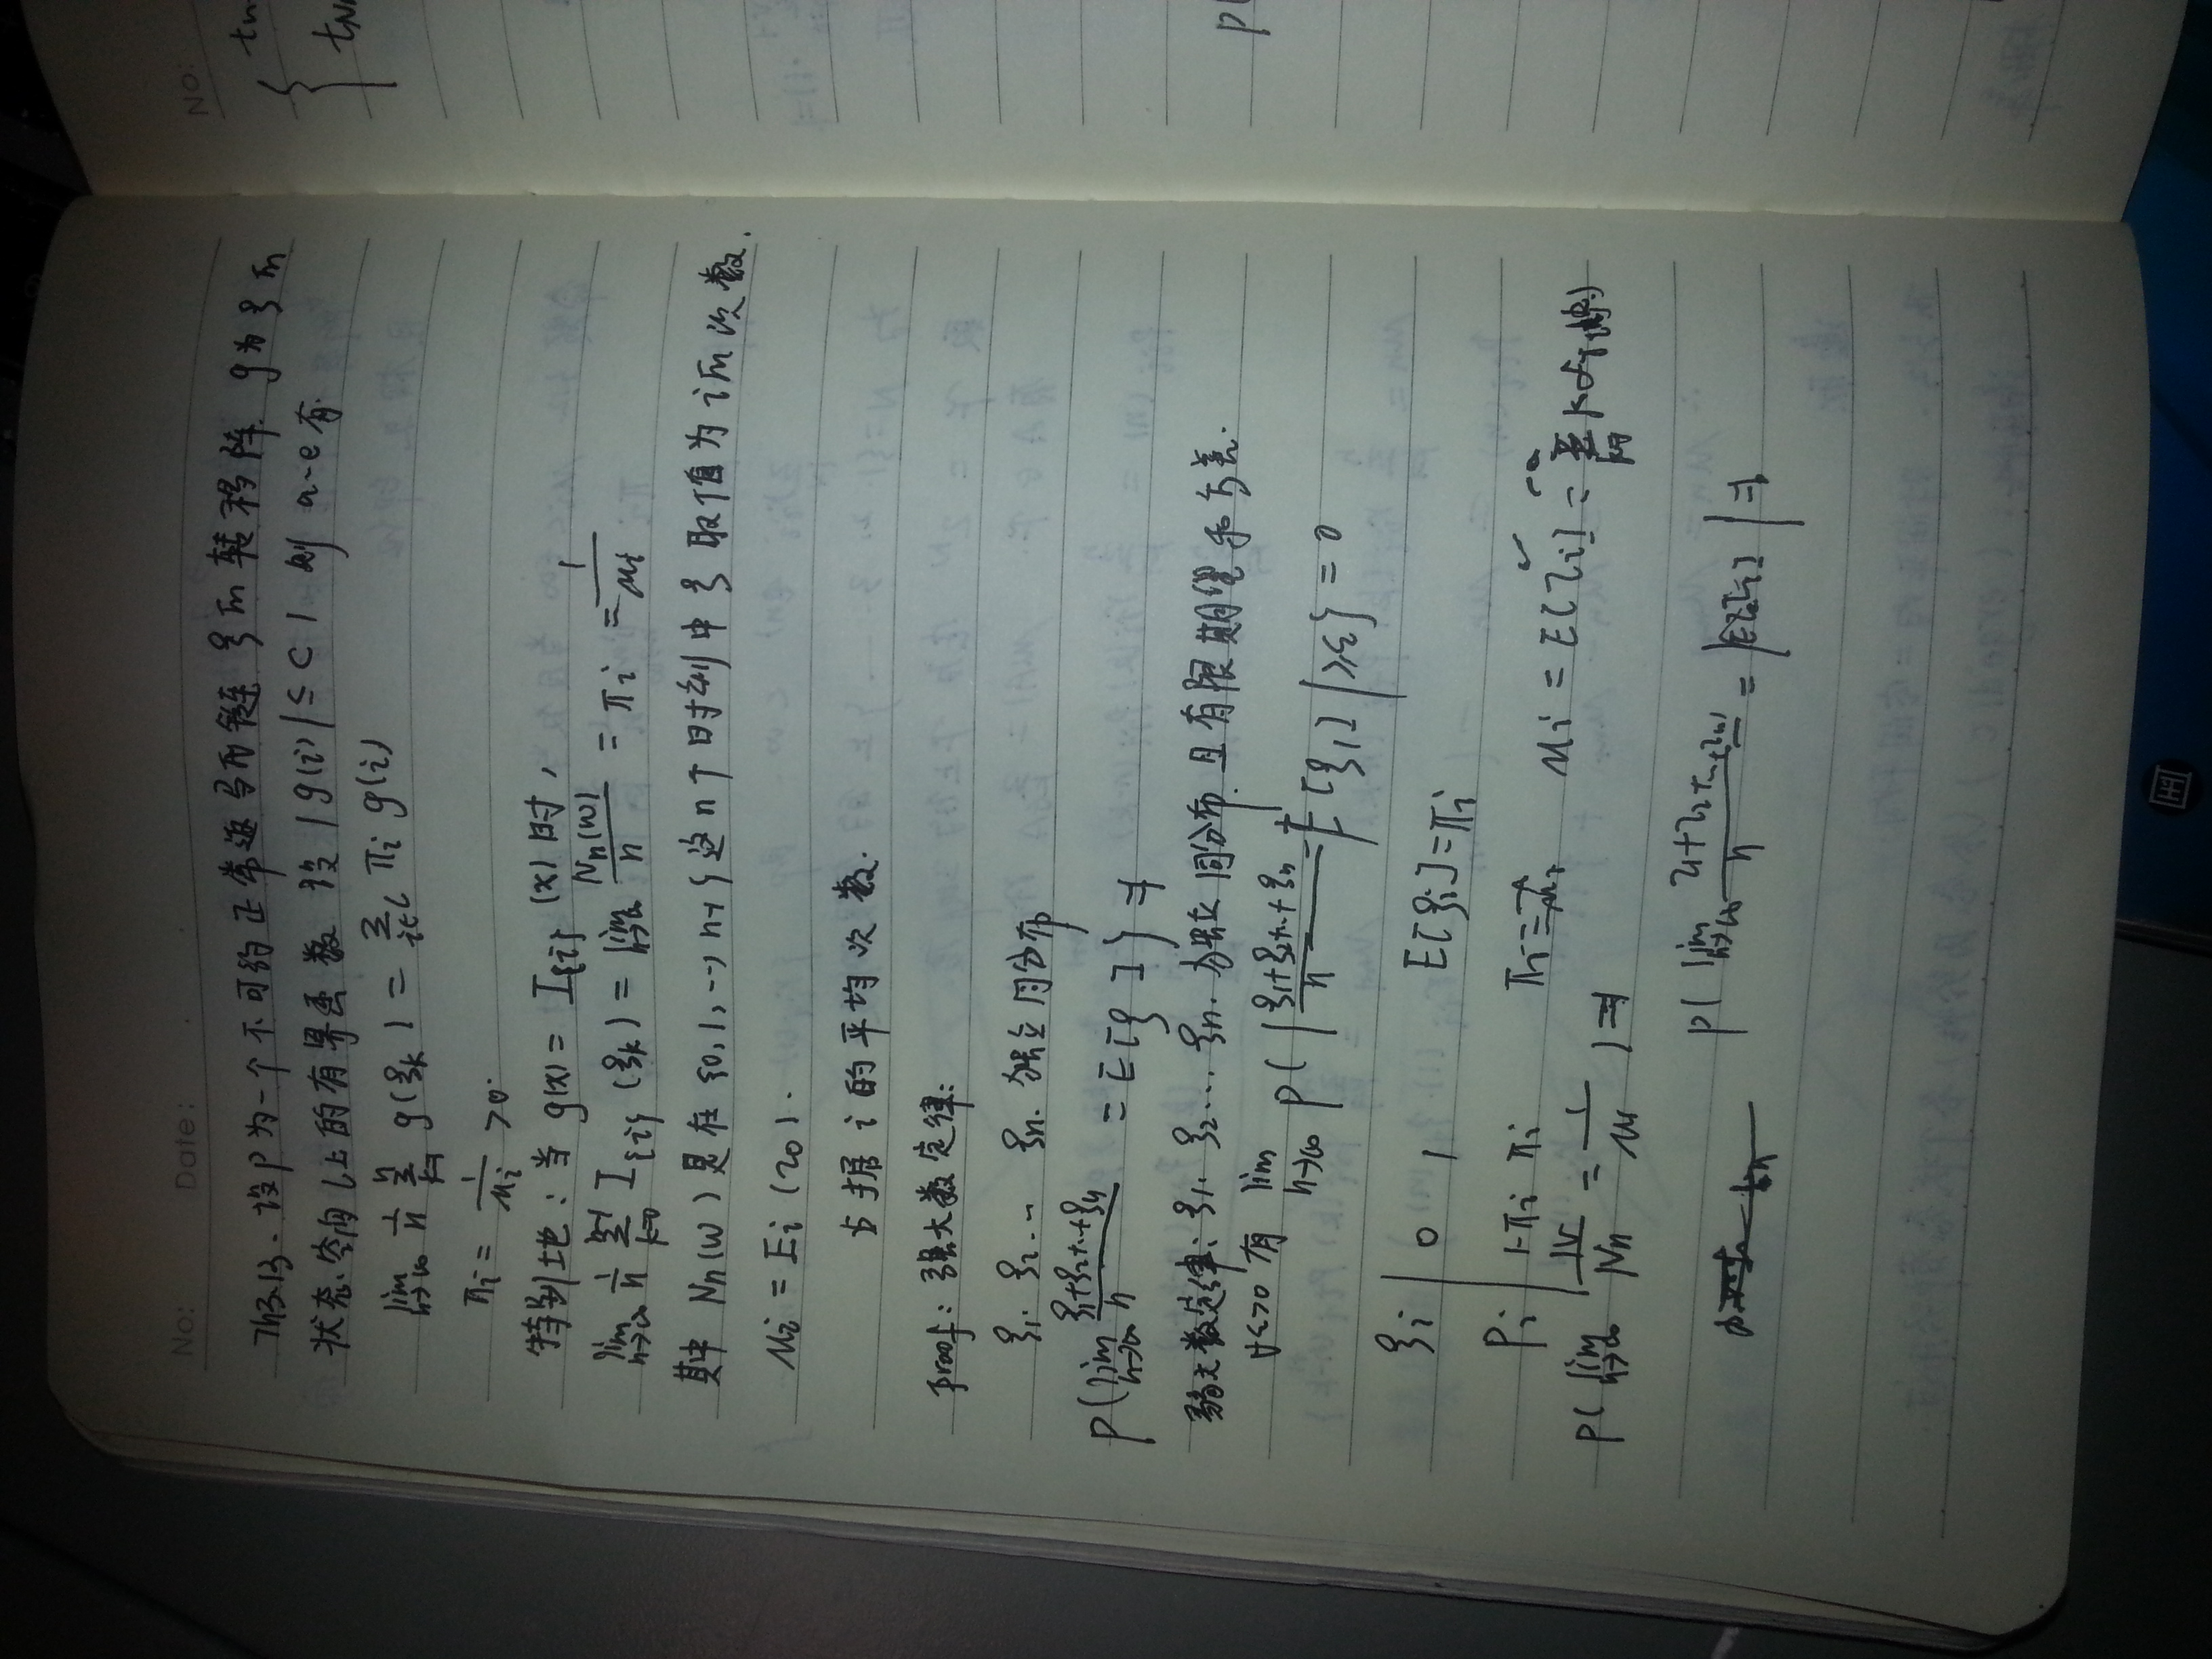 No: Date:
Th3.13. 设P为一个不可约正常返马氏链ξ的转移阵. g为ξ的
状态空间 上的有界函数 设|g(i)|≤C 则 a-e有.
lim n→∞ 1/n Σ k=1 n g(ξk) = Σ i∈ πi g(i)
πi = 1/μi >0.
特别地: 当 g(x) = I{i} (x) 时,
lim n→∞ 1/n Σ k=0 n-1 I{i} (ξk) = lim n→∞ Nn(ω)/n = πi = 1/μi
其中 Nn(ω) 是在 {0, 1, ..., n-1} 这n个时刻中ξ取值为i的次数.
μi = Ei (τ0).
占据 i 的平均次数.
proof: 强大数定律:
ξ1. ξ2 ... ξn. 独立同分布
P( lim n→∞ ξ1+ξ2+...+ξn / n = E[ξ ] } =1
弱大数定律: ξ1. ξ2... ξn. 独立同分布 且有限期望和方差.
∀ε>0 有 lim n→∞ P( | ξ1+ξ2+...+ξn / n - E[ξ1] | ≥ε} = 0
ξi | 0 1 E[ξi] = πi
Pi | 1-πi πi πi = μi = E[τi] = Σ k=1
P( lim n→∞ /Nn = 1/μi ) =1
P( lim n→∞ τ1+τ2+... / n = =1
No:
tn
P(